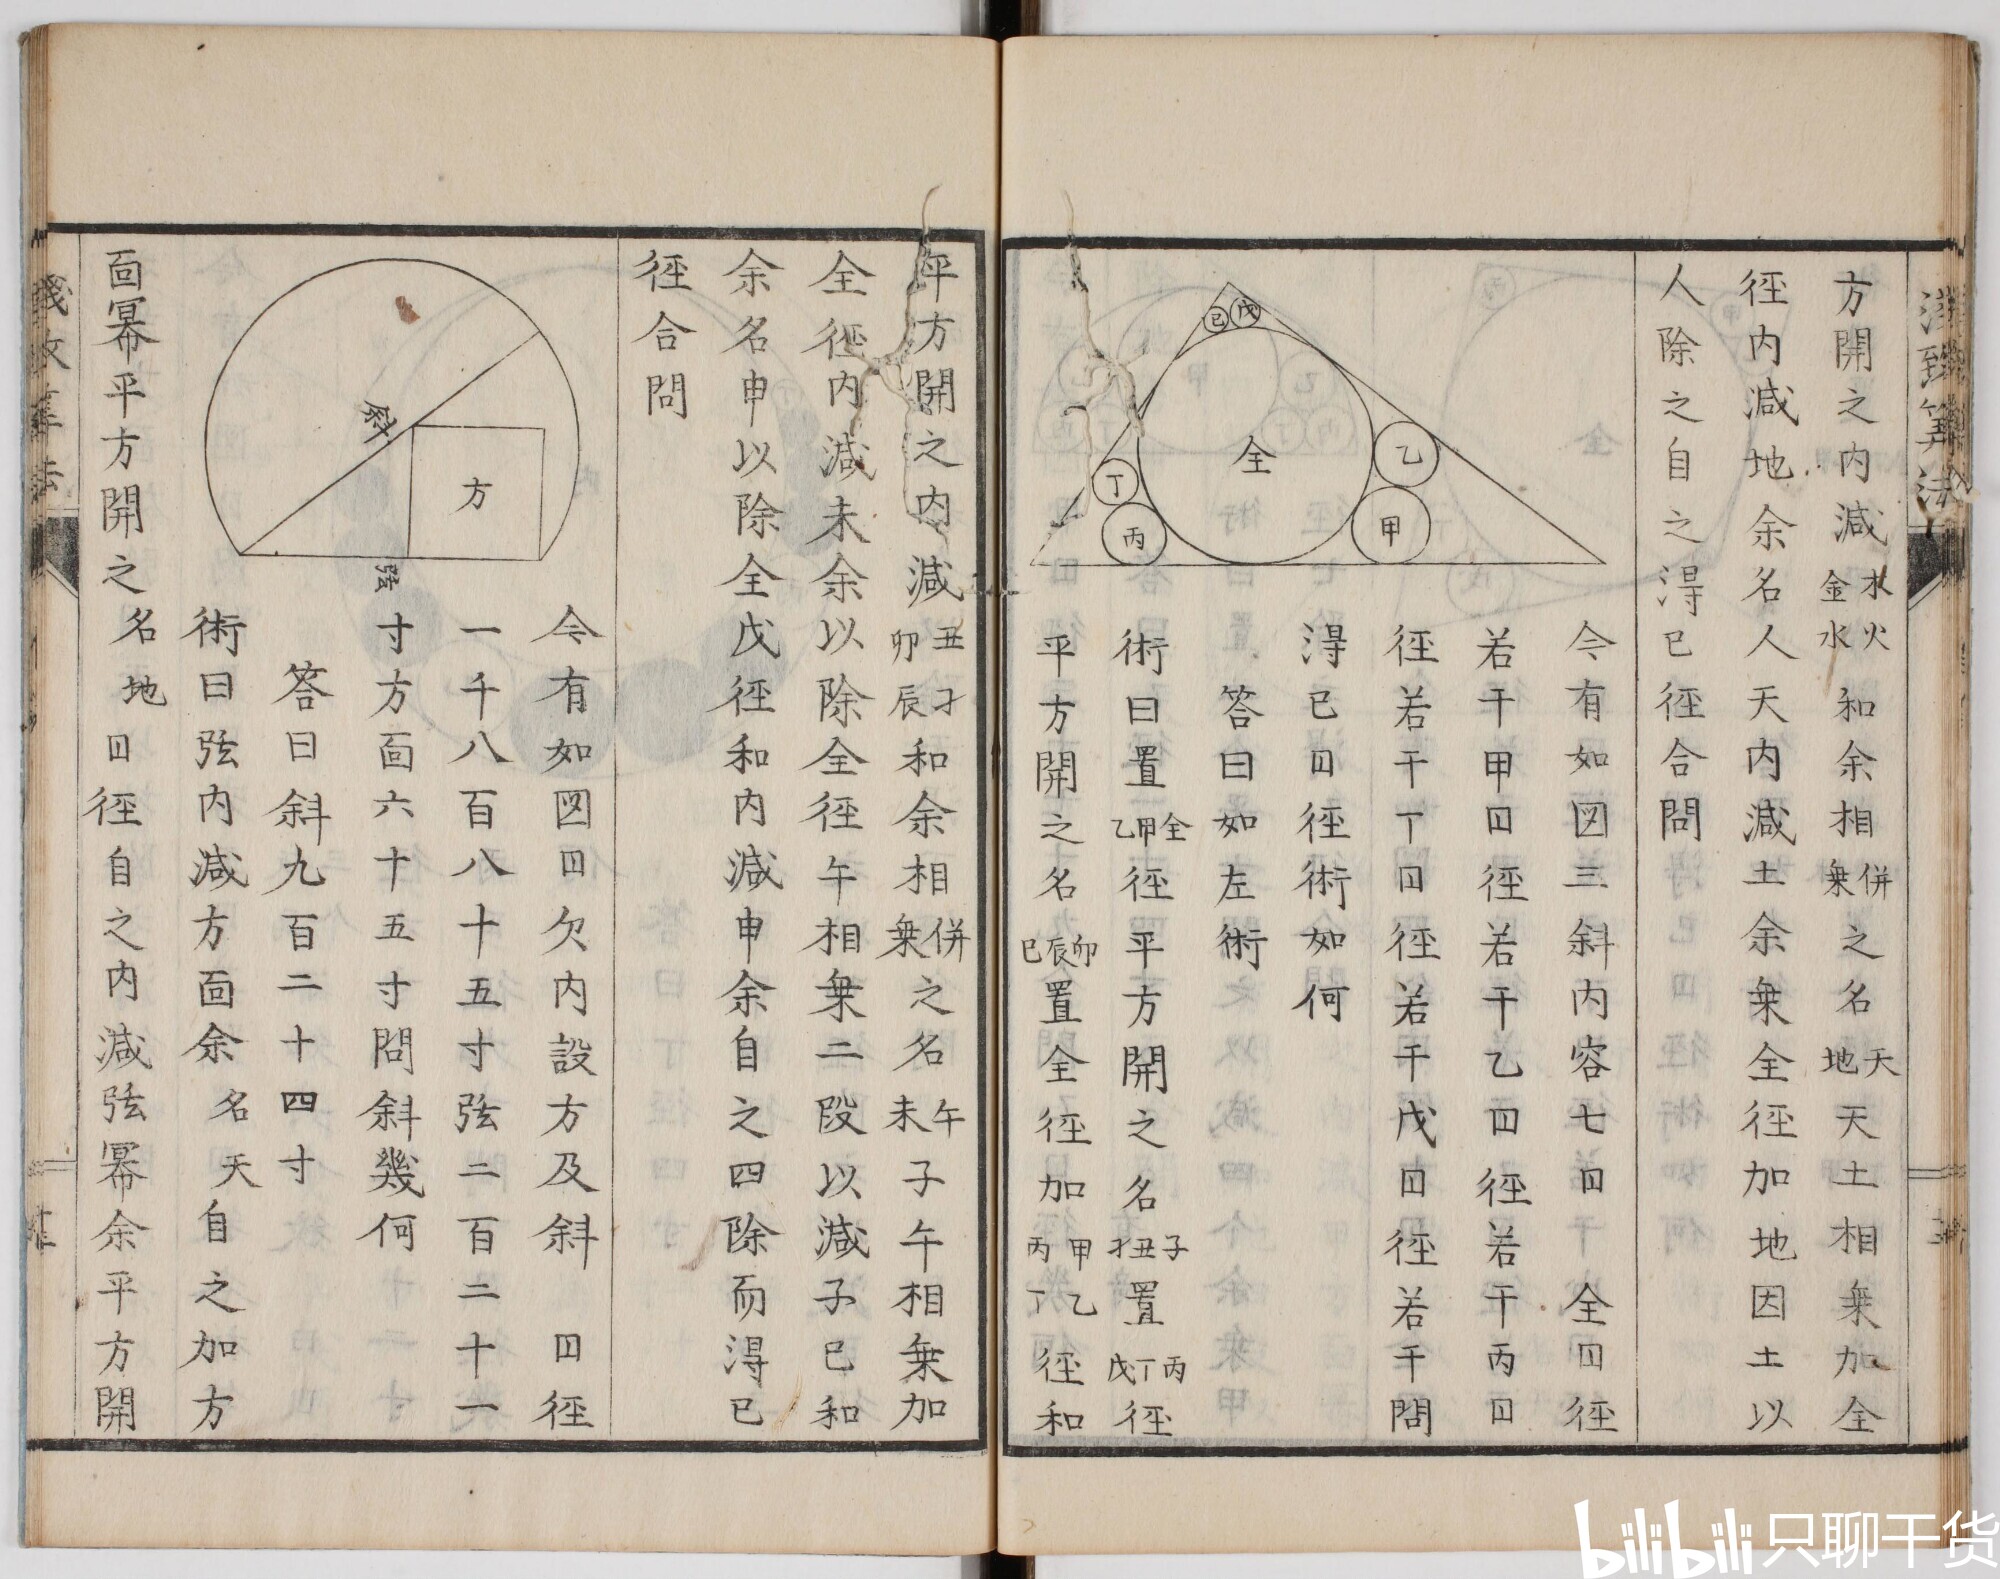 方開之内減水火金水和余相乗併之名天地天土相乗加全
径内減地余名人天内減土余乗全径加地因土以
人除之自之得已径合問
全
甲
乙
丙
丁
戊
已
今有如図三斜内容七囘 全囘径
若干甲囘径若干乙囘径若干丙囘
径若干丁囘径若干戊囘径若干問
得已囘径術如何
答曰如左術
術曰置全甲乙径平方開之名子丑才置丙丁戊径
平方開之名卯辰巳置全径加甲乙丙丁径和
平方開之内減丑才卯辰和余相乗併之名午未子午相乗加
全径内減未余以除全径午相乗二段以減子巳和
余名申以除全戊径和内減申余自之四除而得已
径合問
斜
方
弦
今有如図囘欠内設方及斜 囘径
一千八百八十五寸弦二百二十一
寸方面六十五寸問斜幾何
答曰斜九百二十四寸
術曰弦内減方面余名天自之加方
面冪平方開之名地囘径自之内減弦冪余平方開
bilibili 只聊干货